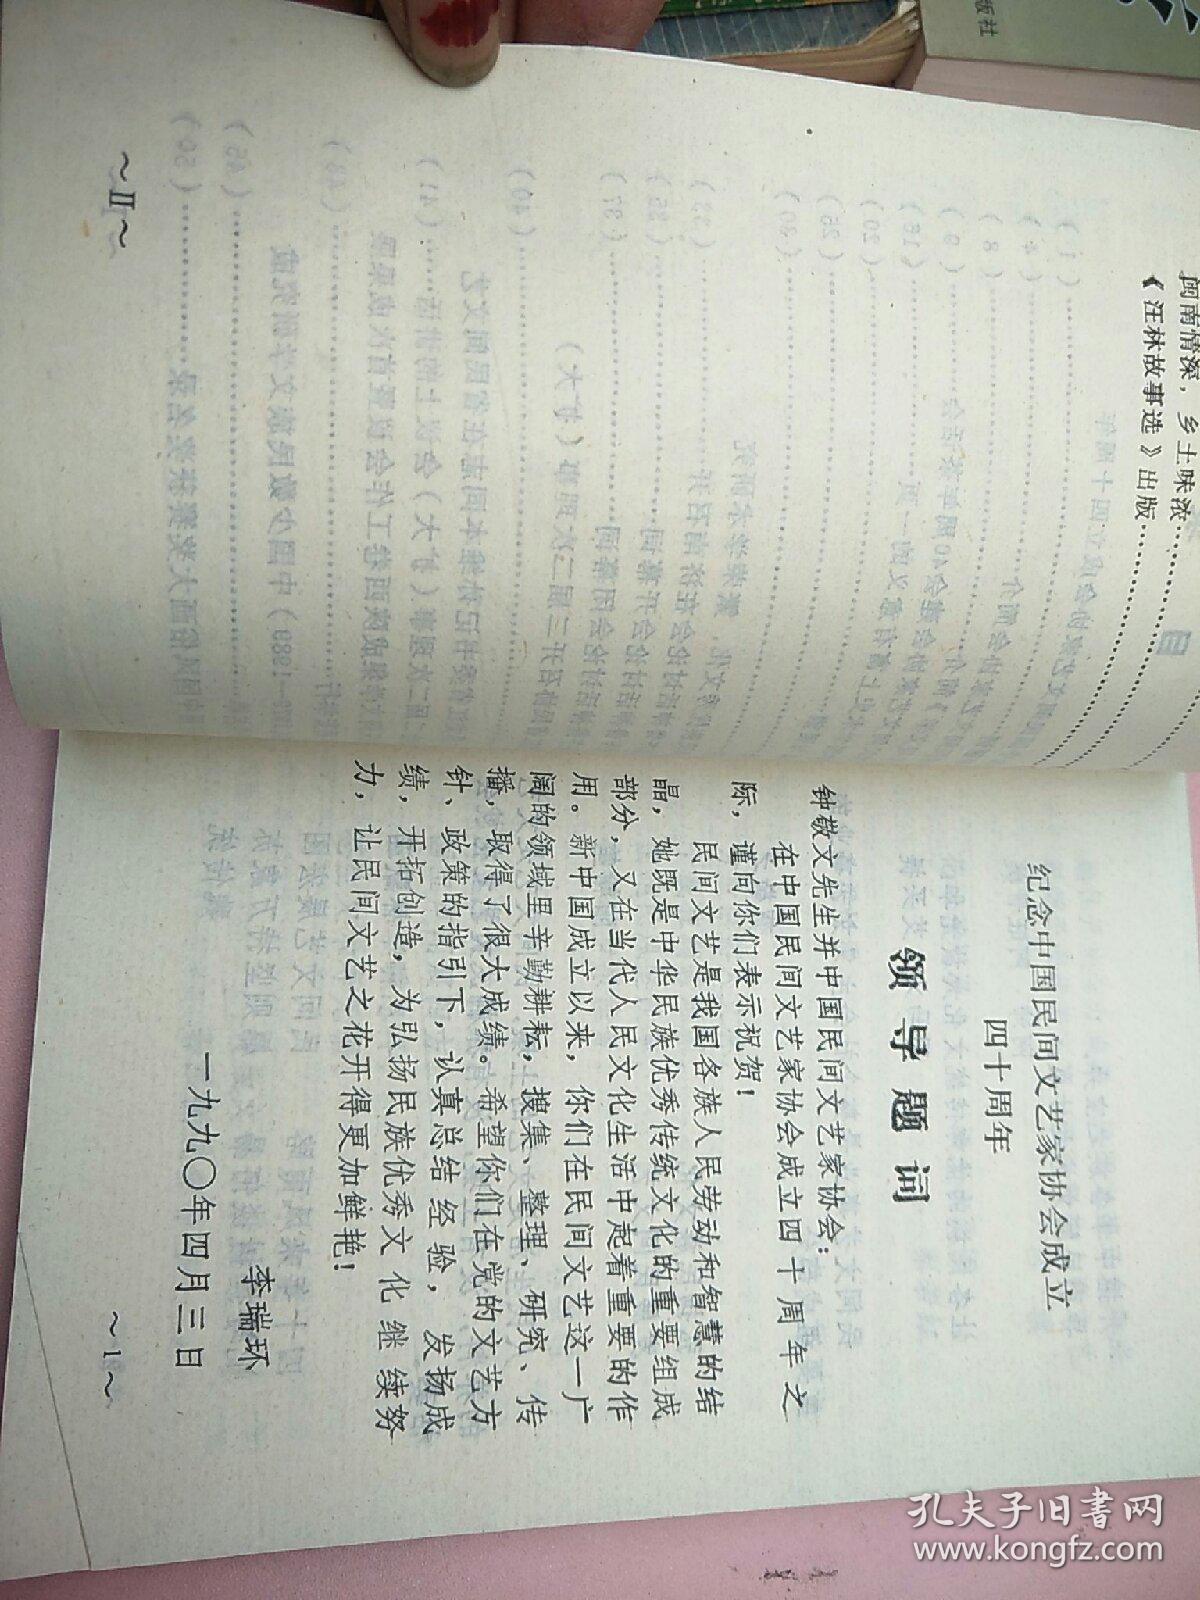 闽南情深，乡土味浓
《汪林故事选》出版
～Ⅱ～
纪念中国民间文艺家协会成立
四十周年
领导题词
钟敬文先生并中国民间文艺家协会：
在中国民间文艺家协会成立四十周年之
际，谨向你们表示祝贺！
民间文艺是我国各族人民劳动和智慧的结
晶，她既是中华民族优秀传统文化的重要组成
部分，又在当代人民文化生活中起着重要的作
用。新中国成立以来，你们在民间文艺这一广
阔的领域里辛勤耕耘，搜集、整理、研究、传
播，取得了很大成绩。希望你们在党的文艺方
针、政策的指引下，认真总结经验，发扬成
绩，开拓创造，为弘扬民族优秀文化继续努
力，让民间文艺之花开得更加鲜艳！
李瑞环
一九九〇年四月三日
～1～
版社
孔夫子旧书网
www.kongfz.com